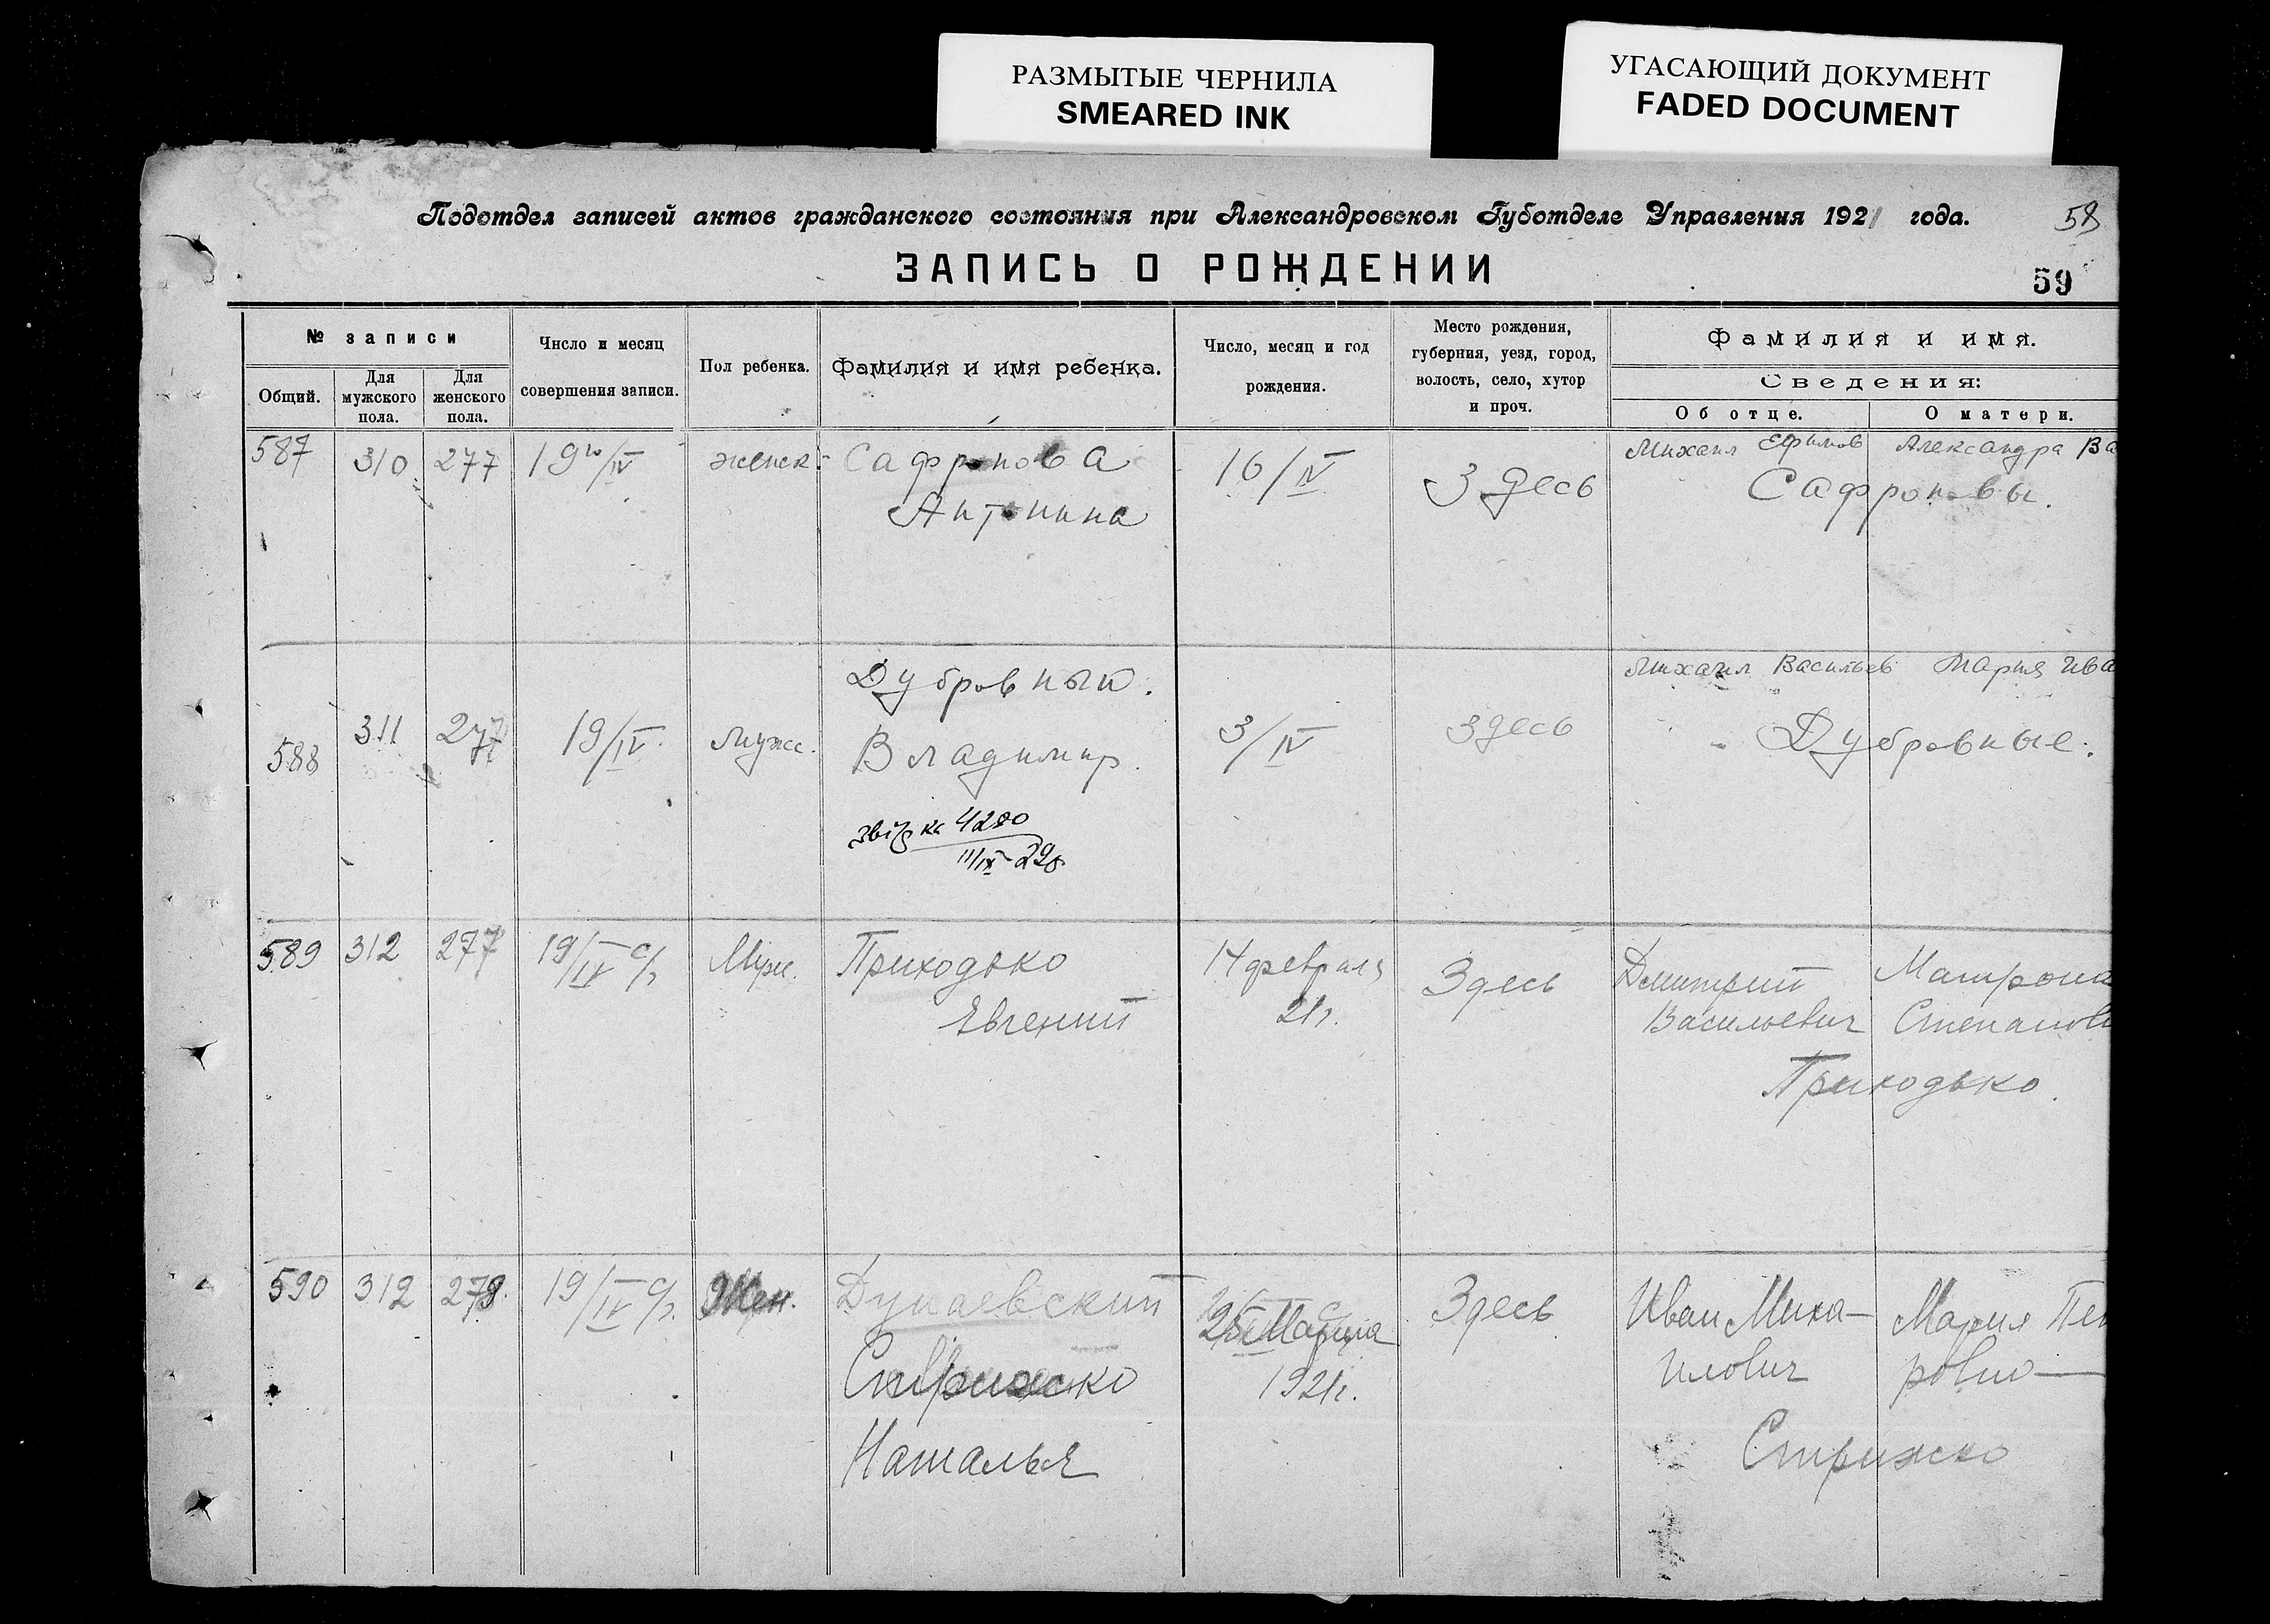 РАЗМЫТЫЕ ЧЕРНИЛА
SMEARED INK
УГАСАЮЩИЙ ДОКУМЕНТ
FADED DOCUMENT
Подотдел записей актов гражданского состояния при Александровском Губотделе Управления 1921 года.
58
ЗАПИСЬ О РОЖДЕНИИ
59
№ записи
Общий.
Для мужского пола.
Для женского пола.
Число и месяц совершения записи.
Пол ребенка.
Фамилия и имя ребенка.
Число, месяц и год рождения.
Место рождения, губерния, уезд, город, волость, село, хутор и проч.
Фамилия и имя.
Сведения:
Об отце.
О матери.
587 310 277 19го/IV женск. Сафронова 16/IV Здесь Михаил Ефимов Александра Ва
Антонина Сафроновы.
Дубровный. Михаил Васильев Мария Ива
588 311 277 19/IV мужс. Владимир. 3/IV здесь Дубровные.
4280
11/IX-29р.
589 312 277 19/IV с/г Муж. Приходько 14 февраля Здесь Дмитрий Матрона
Евгений 21г. Васильевич Степанов
Приходько.
590 312 278. 19/IV с/г. Жен. Дунаевский 25 Марта Здесь Иван Миха- Мария Пет
Стрижко 1921г. илович ровно—
Наталья Стрижко